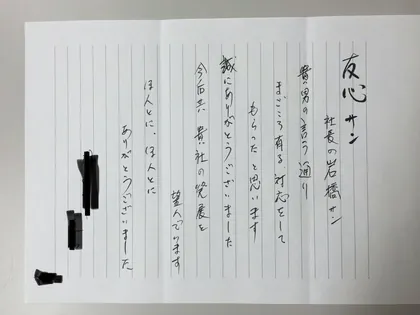 友心サン
社長の岩橋サン
貴男の言う通り
まごころ有る対応をして
もらったと思います
誠にありがとうございました
今后共貴社の発展を
望んでいます
ほんとに、ほんとに
ありがとうございました